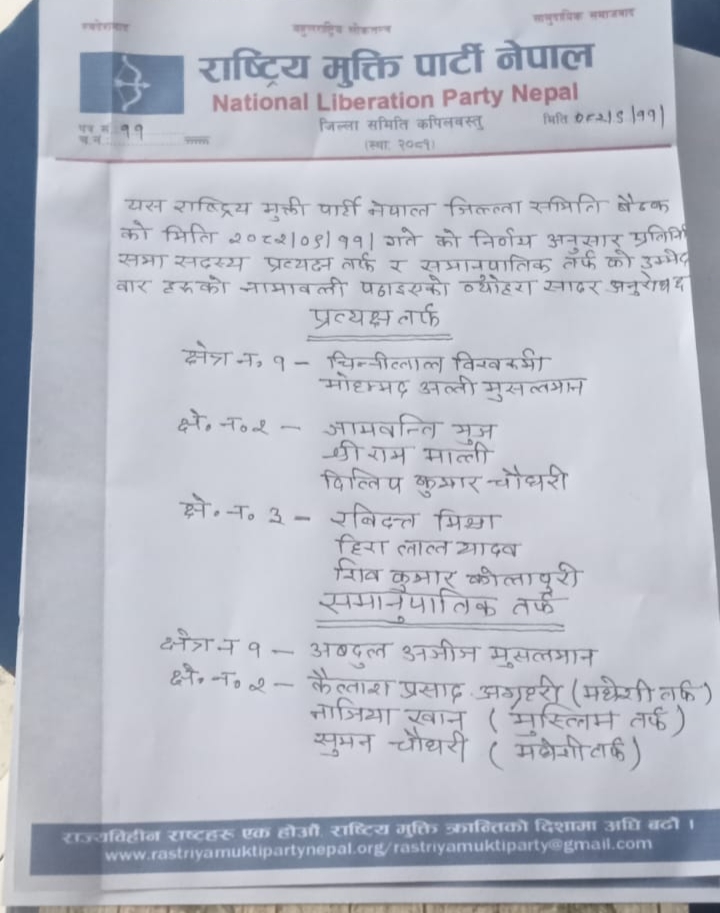 स्वदेशवाद बहुराष्ट्रिय लोकतन्त्र सामुदायिक समाजवाद
राष्ट्रिय मुक्ति पार्टी नेपाल
National Liberation Party Nepal
जिल्ला समिति कपिलवस्तु
मिति ०८२।९।११।
(स्था. २०८१)
पत्र सं. ११
च.नं.
यस राष्ट्रिय मुक्ती पार्टी नेपाल जिल्ला समिति बैठक
को मिति २०८२।०९।११। गते को निर्णय अनुसार प्रतिनिधि
सभा सदस्य प्रत्यक्ष तर्फ र समानुपातिक तर्फ को उम्मेद
वार हरुको नामावली पठाइएको व्योहरा सादर अनुरोध छ
प्रत्यक्ष तर्फ
क्षेत्र नं. १ - चिन्नीलाल विश्वकर्मा
मोहम्मद अल्ली मुसलमान
क्षे. नं. २ - जामवन्ति भुज
श्री राम माली
दिलिप कुमार चौधरी
क्षे. नं. ३ - रबिदत्त मिश्रा
हिरा लाल यादव
शिव कुमार कोलापुरी
समानुपातिक तर्फ
क्षेत्र नं १ - अब्दुल अजीज मुसलमान
क्षे. नं. २ - कैलाश प्रसाद अग्रहरी (मधेसी तर्फ)
नाजिया खान ( मुस्लिम तर्फ )
सुमन चौधरी ( मधेसी तर्फ )
राज्यविहीन राष्ट्रहरु एक होऔं, राष्ट्रिय मुक्ति क्रान्तिको दिशामा अघि बढौं ।
www.rastriyamuktipartynepal.org/rastriyamuktiparty@gmail.com